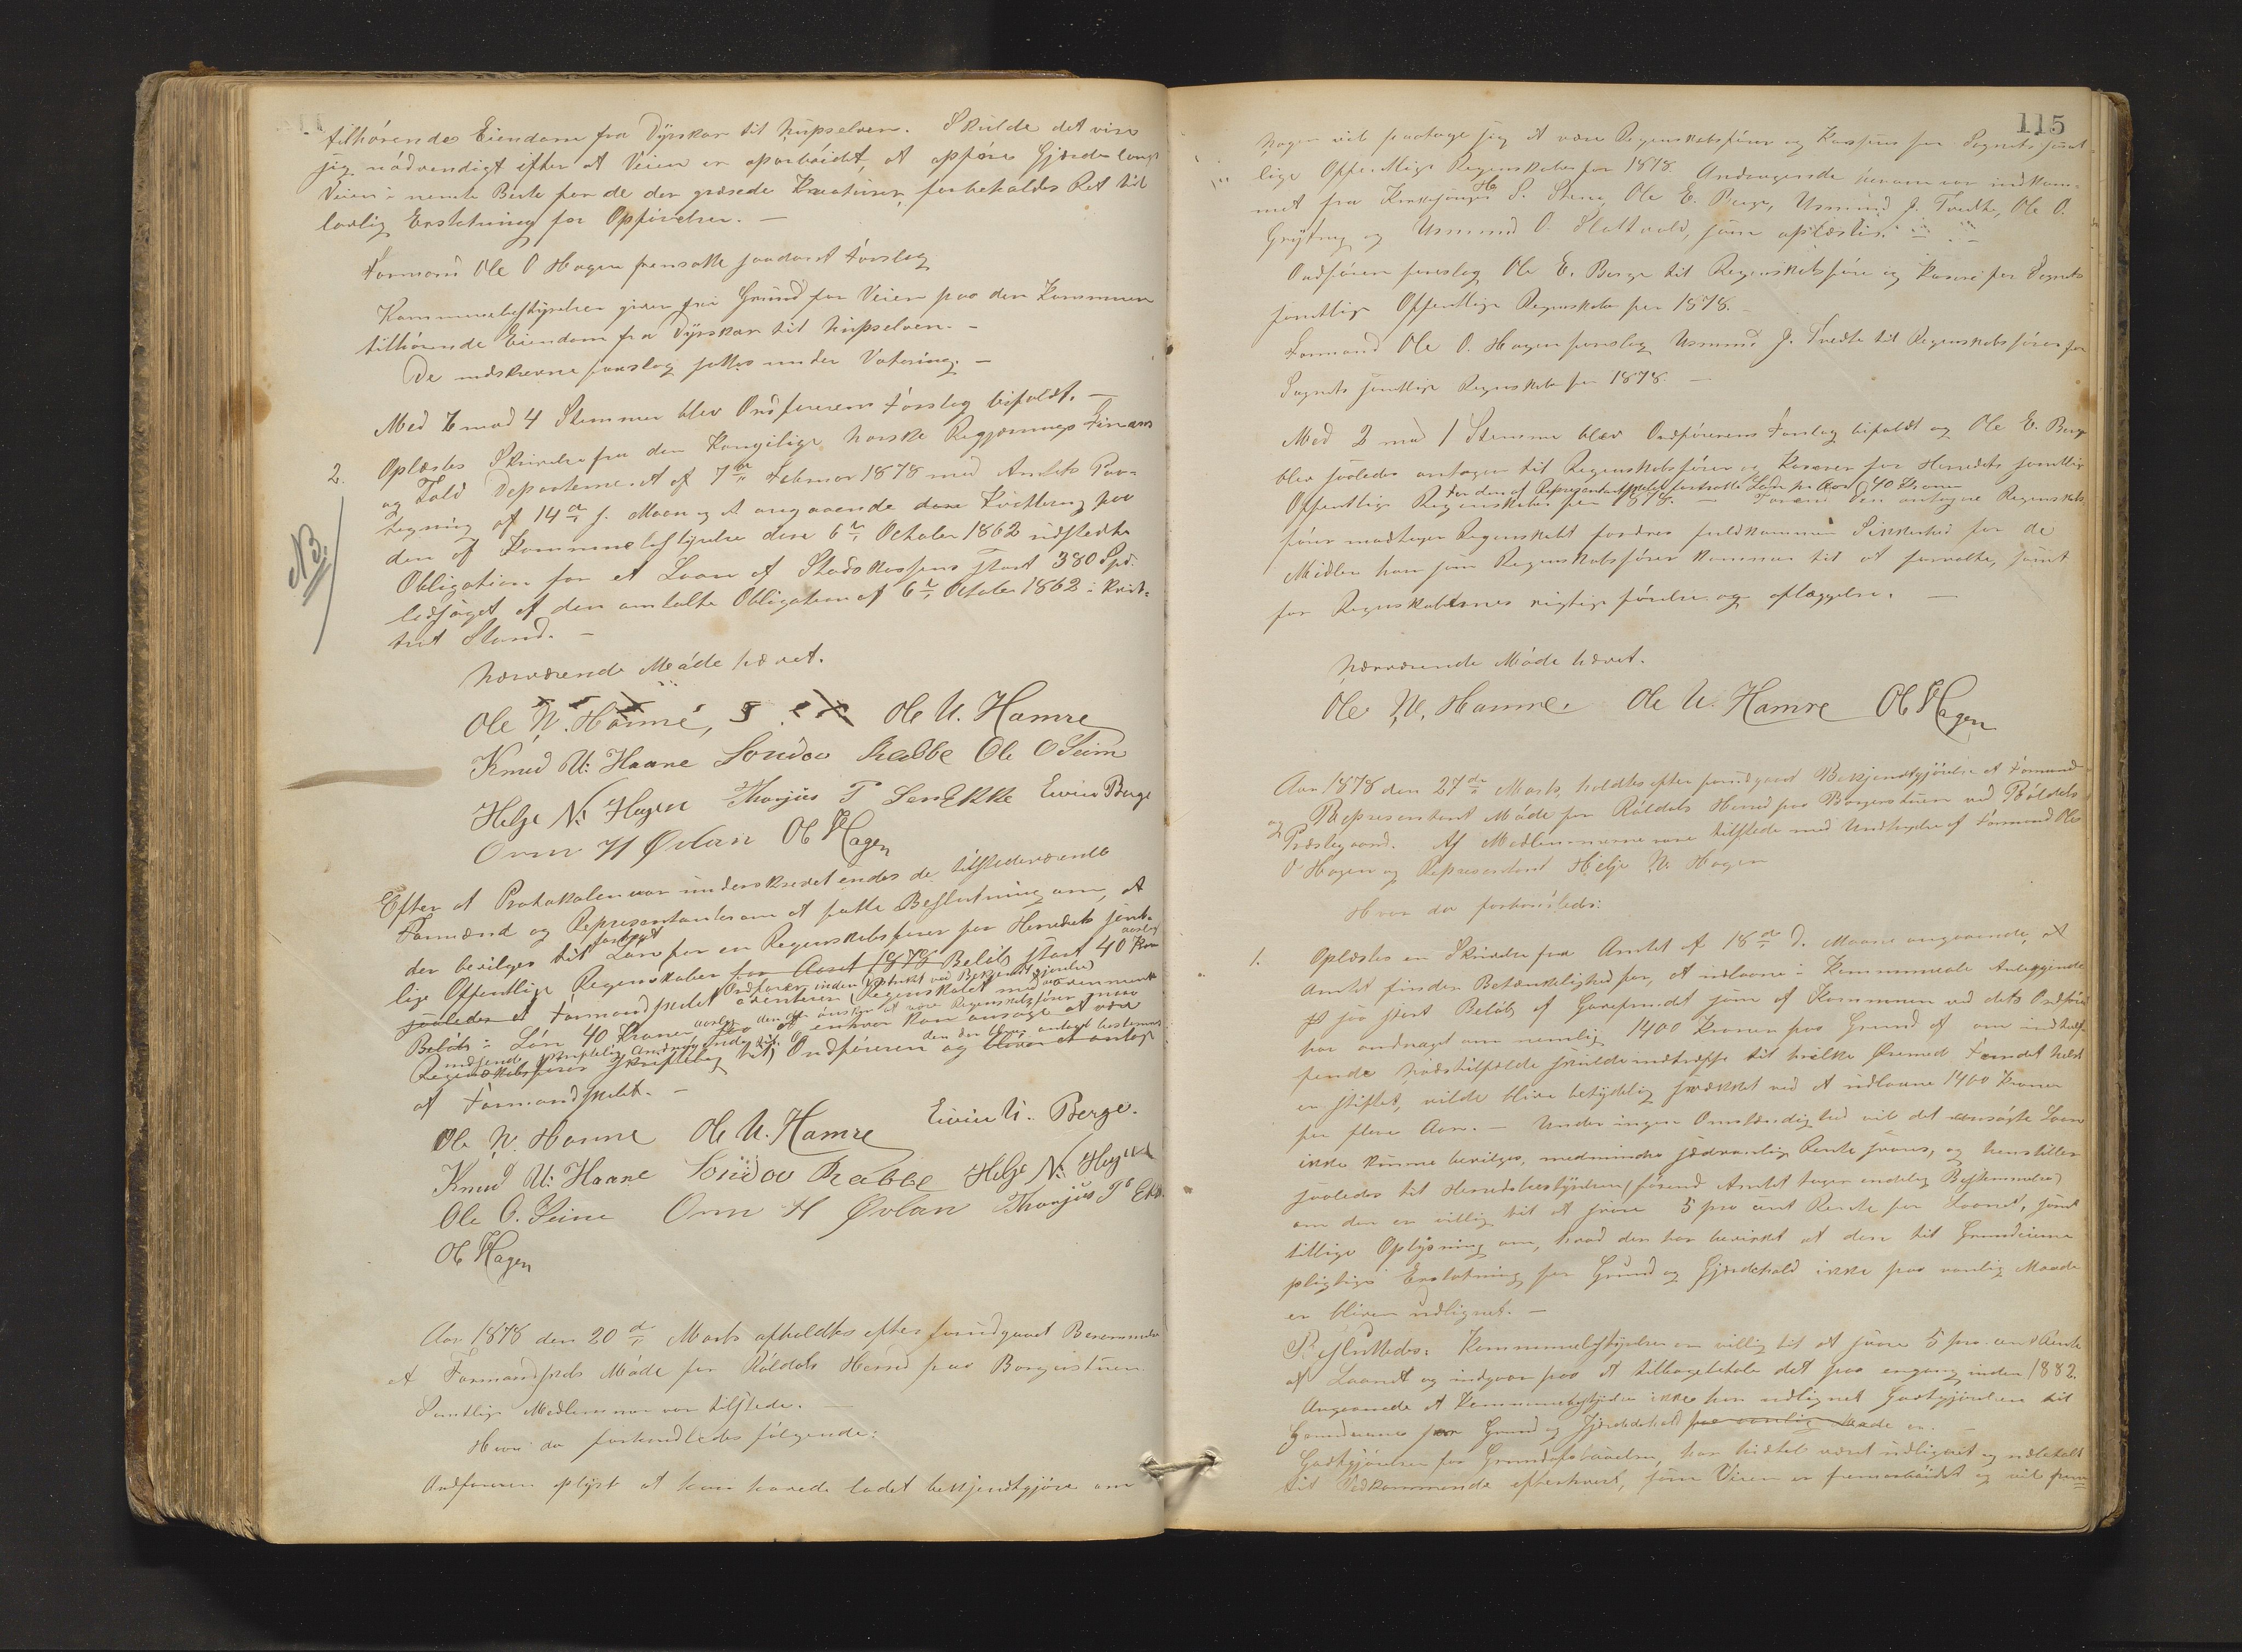 tilhörende Eiendom fra Dyrskar til Nupselven. Skulde det vise
sig nödvendigt efter at Veien er oparbeidet, at opföre Gjærde langs
Veien i nemte Beite for de der græsede Kreaturer, forbeholdes Ret til
lovlig Erstatning for Opförelsen. —
Formand Ole O Hagen fremsatte saadant Forslag
Kommunebestyrelsen giver fri Grund for Veien paa den Kommunen
tilhörende Eiendom fra Dyrskar til Nupselven. —
De indskrevne forslag sattes under Votering. —
Med 6 mod 4 Stemmer blev Ordförerens Forslag bifaldt. —
2. Oplæstes Skrivelse fra den Kongelige norske Regjærings Finans
og Told Departement af 7de Februar 1878 med Amtets Paa-
tegning af 14de f. Maan. angaaende Kvittering paa
NB. den af Kommunebestyrelse den 6te October 1862 udstedte
Obligation for et Laan af Stadskassen stort 380 Spd.
ledsaget af den omtalte Obligation af 6te October 1862 i kvit-
tret Stand. —
Nærværende Möde hævet.
Ole N. Hamre, Ole U. Hamre
Knud U. Haare Sondov Rabbe Ole O Seim
Helge N. Hagen Thorjus T Ekkje Eivin Berge
Orm H Øvlan Ol Hagen
Efter at Protokolen var underskrevet endes de tilstedeværende
Formænd og Representanter om at fatte Beslutning om, at
der beviges til Lön for en Regnskabsförer for Herredets samt-
lige Offentlige Regnskaber for Aaret 1878 Belöb stort 40 Kro
aarlig
saaledes at Formandskabet
Ordförer inden ved Bekjendtgjörelse
Belöb i Lön 40 Kroner aarlig den der önsker at være Regnskabsförer maa
enhver kan ansöge at være
indsende skriftlig Andragende til
Regnskabsförer skriftlig til Ordföreren og den der bliver antaget bestemmes
bliver at antage
af Formandskabet. —
Ole N. Hamre Ole U. Hamre Eivin U. Berge.
Knud U. Haare Sondov Rabbe Helge N. Hagen
Ole O. Seim Orm H Øvlan Thorjus T Ekk
Ol Hagen
Aar 1878 den 20de Marts afholdtes efter forudgaaet Berammelse
et Formandskabs Möde for Röldals Herred paa Borgerstuen.
Samtlige Medlemmer var tilstede. —
Hvor da forhandledes fölgende:
Ordföreren oplyst at han havde ladet bekjendtgjöre om
115
nogen vil paatage sig at være Regnskabsförer og Kasserer for Sognets samt-
lige Offentlige Regnskaber for 1878. Andragende herom var indkom-
met fra Kirkesanger Hr. S. Steine, Ole E. Berge, Usmund J. Tvedte, Ole O.
Grytting og Usmund O. Slettvold, som oplæstes.
Ordföreren foreslog Ole E. Berge til Regnskabsförer og Kasserer for Sognets
samtlige Offentlige Regnskaber for 1878.
Formand Ole O. Hagen foreslog Usmund J. Tvedte til Regnskabsförer for
Sognets samtlige Regnskaber for 1878. —
Med 2 mod 1 Stemme blev Ordförerens Forslag bifaldt og Ole E. Berge
blev saaledes antagen til Regnskabsförer og Kasserer for Herredets samtlige
For den af Representantskabet fastsatte Lön pr Aar 40 Kroner
Offentlige Regnskaber for 1878. — Forinden den antagne Regnskabs-
förer modtager Regnskabet fordres fuldkommen Sikkerhed for de
Midler han som Regnskabsförer kommer til at forvalte, samt
for Regnskabernes rigtige förelse og aflæggelse. —
Nærværende Möde hævet.
Ole N. Hamre. Ole U. Hamre Ol Hagen
Aar 1878 den 27de Marts, holdtes efter forudgaaet Bekjendtgjörelse et Formand
og Representant Möde for Röldals Herred paa Borgerstuen ved Röldals
Præstegaard. Af Medlemmerne vare tilstede med Undtagelse af Formand Ole
O Hagen og Representant Helje N. Hagen
Hvor da forhandledes:
1. Oplæstes en Skrivelse fra Amtet af 18de d. Maane angaaende, at
Amtet finder Betænkelighed for, at udlaane i Kommunale Anliggende
et saa stort Belöb af Garefondet som af Kommunen ved dets Ordförer
har andraget om nemlig 1400 Kroner paa Grund af om indtræf-
fende Nödstilfælde skulde indtræffe til hvilke Öiemed Fondet heldst
er stiftet, vilde blive betydelig svækket ved at udlaane 1400 Kroner
for flere Aar. — Under ingen Omstændighed vil det ansögte Laan
ikke kunne beviges, medmindre sædvanlig Rente svares, og henstilles
saaledes til Herredsbestyrelsen (förend Amtet tager endelig Bestemmelse)
om den er villig til at svare 5 pro cent Rente for Laanet, samt
tillige Oplysning om, hvad der har bevirket at den til Grundeierne
pligtige Erstatning for Grund og Gjærdehold ikke paa vanlig Maade
er bleven udlignet. —
Besluttedes: Kommunebestyrelsen er villig til at svare 5 pro cent Rente
af Laanet og indgaar paa at tilbagebetale det paa engang inden 1882.
Angaaende at Kommunebestyrelsen ikke har udlignet Godtgjörelsen til
Grundeierne for Grund og Gjærdehold paa vanlig Maade er. —
Godtgjörelsen for Grundafstaaelse, har hidtil været udlignet og udbetalt
til Vedkommende efterhvert, som Veien er fremarbeidet og vil frem=